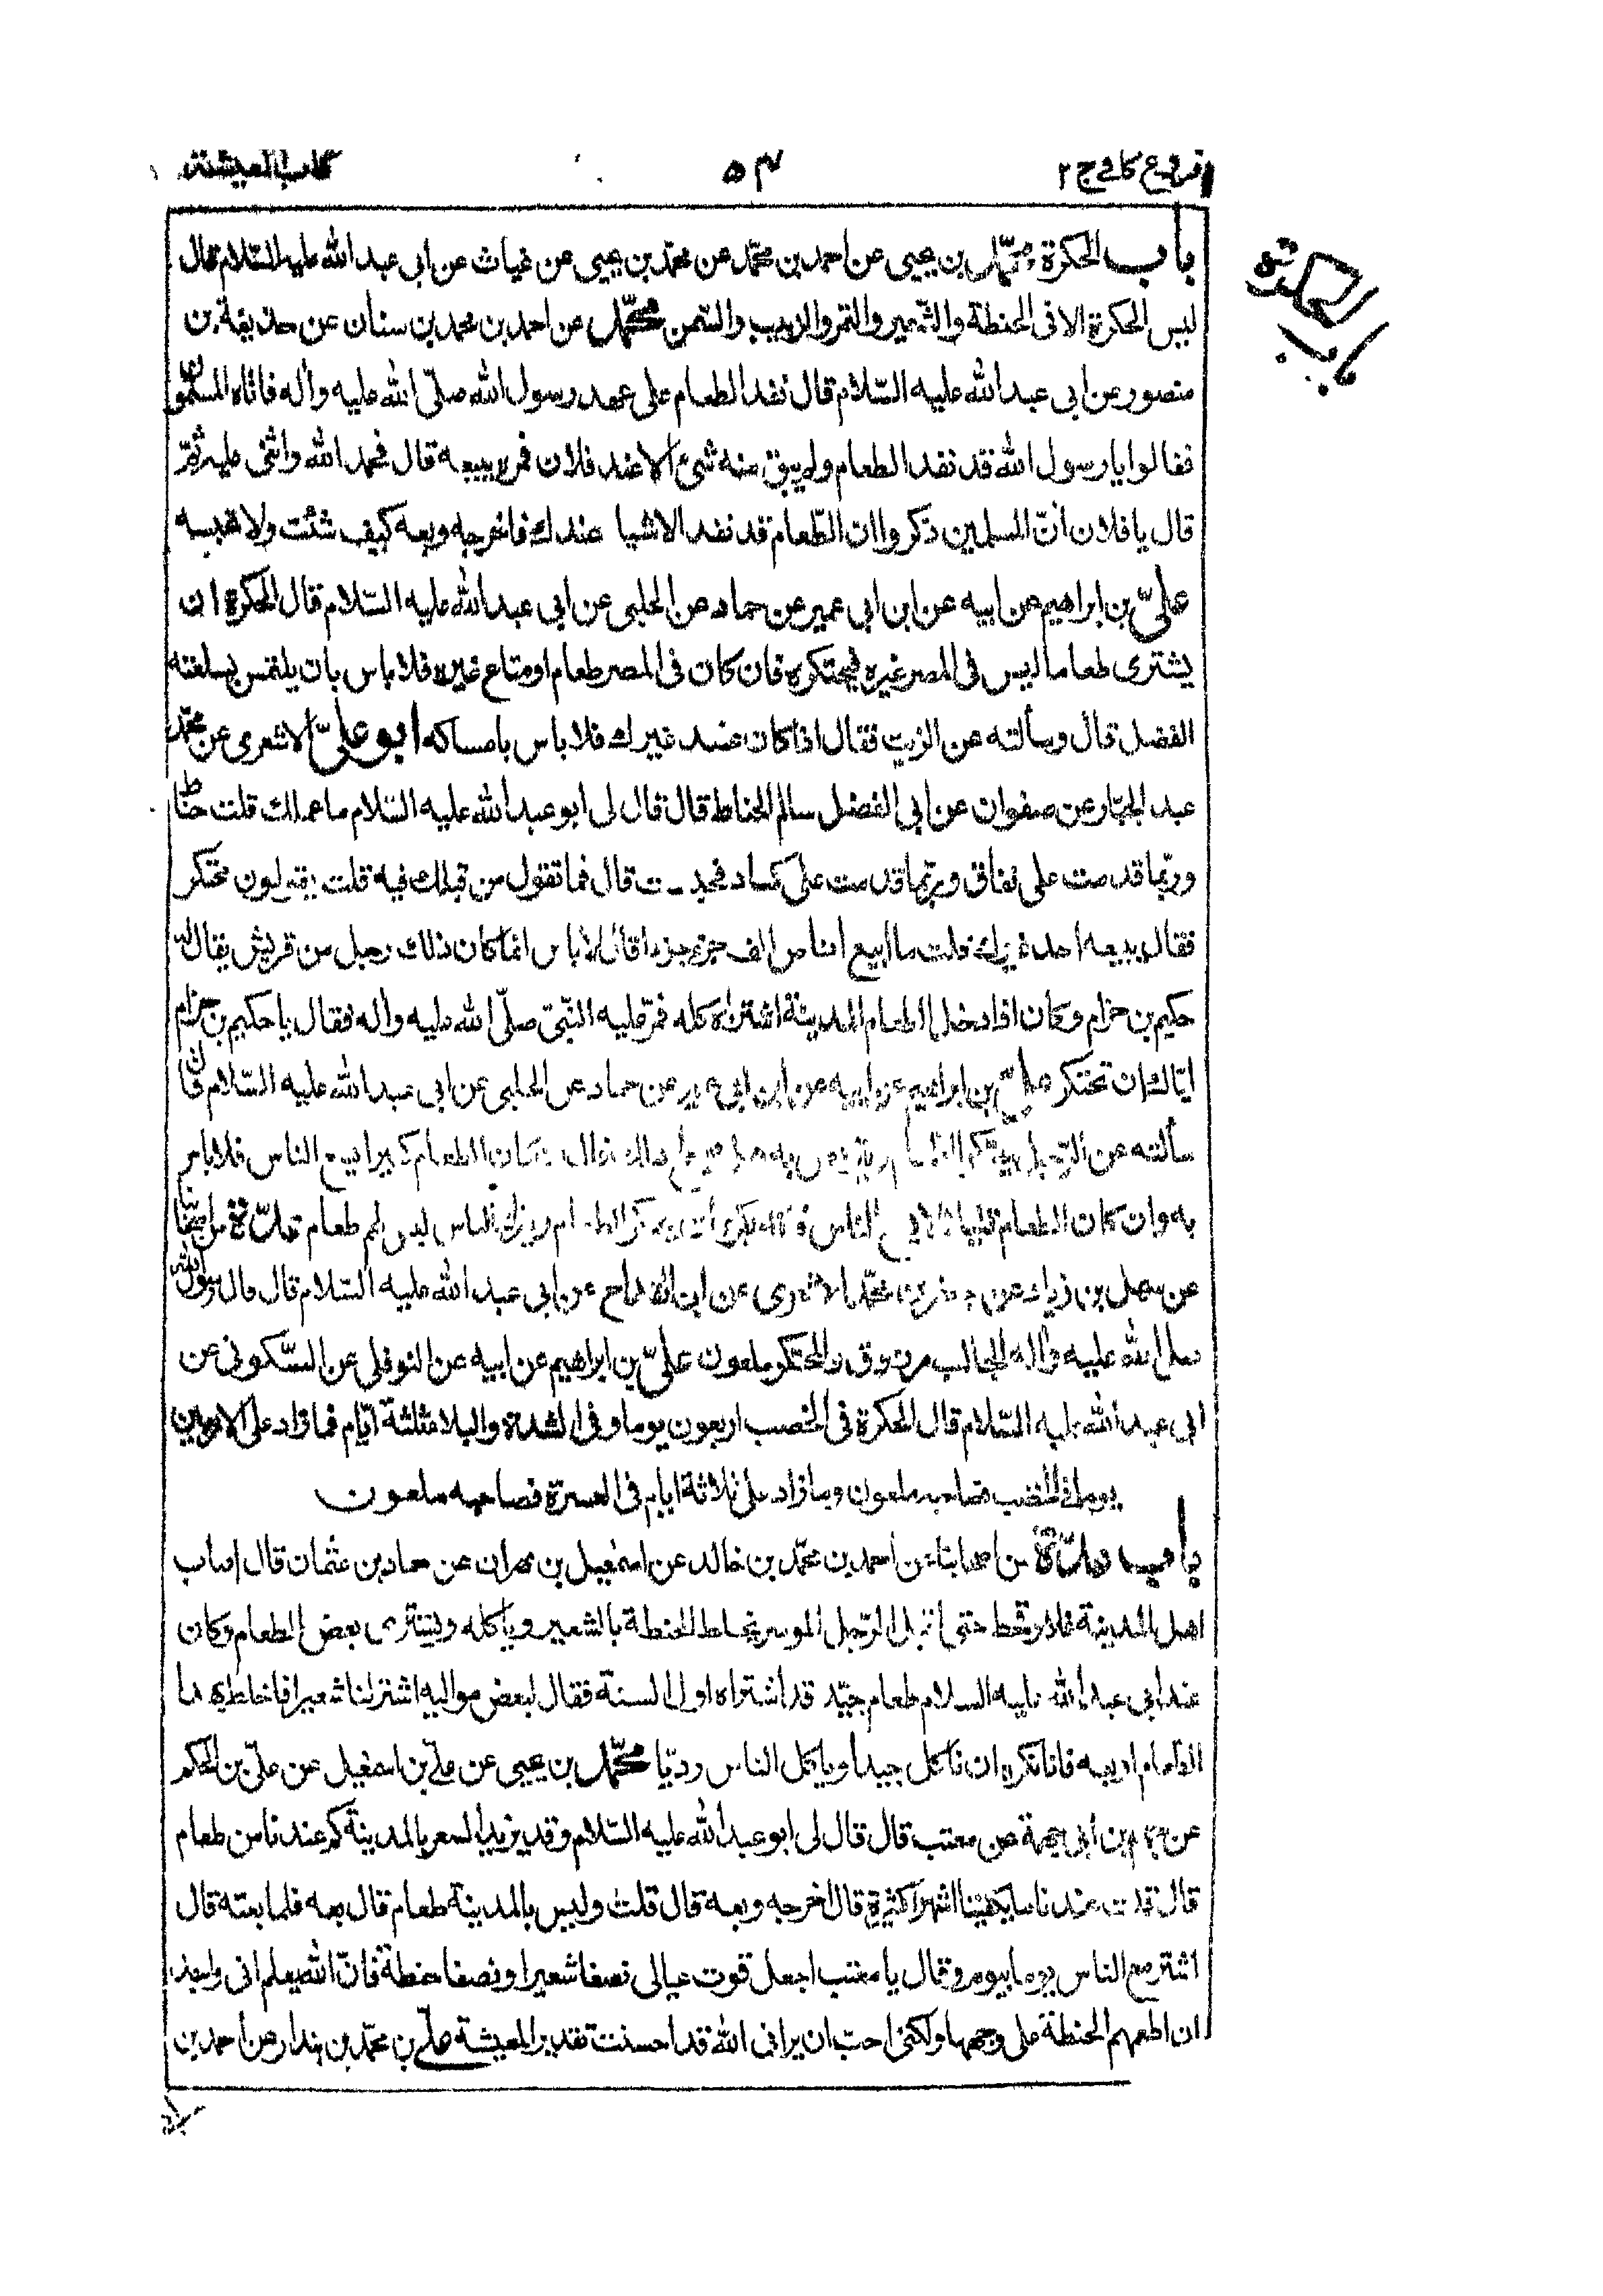 فروع كافي ج ٢
٥٣
كتاب المعيشة
باب الحكرة
باب الحكرة محمّد بن يحيى عن احمد بن محمّد عن محمّد بن يحيى عن غياث عن ابى عبد الله عليه السّلام قال
ليس الحكرة الا فى الحنطة والشّعير والتمر والزبيب والسّمن محمّد عن احمد بن محمد بن سنان عن حذيفة بن
منصور عن ابى عبد الله عليه السّلام قال نفد الطعام على عهد رسول الله صلّى الله عليه واله فاتاه المسلمون
فقالوا يا رسول الله قد نفد الطعام ولم يبق منه شئ الا عند فلان فمره ببيعه قال فحمد الله واثنى عليه ثمّ
قال يا فلان انّ المسلمين ذكروا ان الطّعام قد نفد الا شيا عندك فاخرجه وبعه كيف شئت ولا تحبسه
علىّ بن ابراهيم عن ابيه عن ابن ابى عمير عن حماد عن الحلبى عن ابى عبد الله عليه السّلام قال الحكرة ان
يشترى طعاما ليس فى المصر غيره فيحتكره فان كان فى المصر طعام او متاع غيره فلا باس بان يلتمس بسلعته
الفضل قال وسألته عن الزيت فقال اذا كان عند غيرك فلا باس بامساكه ابو علىّ الاشعرى عن محمّد
عبد الجبّار عن صفوان عن ابى الفضل سالم الحناط قال قال لى ابو عبد الله عليه السّلام ما عملك قلت حنّاط
وربّما قدمت على نفاق وربّما قدمت على كساد فحبست قال فما تقول من قبلك فيه قلت يقولون محتكر
فقال يبيعه احد غيرك قلت ما ابيع انا من الف جزء جزءا قال لا باس انّما كان ذلك رجل من قريش يقال له
حكيم بن حزام وكان اذا دخل الطعام المدينة اشتراه كله فمرّ عليه النّبىّ صلّى الله عليه واله فقال يا حكيم بن حزام
ايّاك ان تحتكر علىّ بن ابراهيم عن ابيه عن ابن ابى عمير عن حماد عن الحلبى عن ابى عبد الله عليه السّلام قال
سألته عن الرّجل يحتكر الطعام يتربص به هل ذلك فقال ان كان الطعام كثيرا يسع الناس فلا باس
به وان كان الطعام قليلا لا يسع الناس فانه يكره ان يحتكر الطعام ويترك الناس ليس لهم طعام عدّة من اصحابنا
عن سهل بن زياد عن جعفر بن محمّد الاشعرى عن ابن القداح عن ابى عبد الله عليه السّلام قال قال رسول الله
صلى الله عليه واله الجالب مرزوق والمحتكر ملعون علىّ بن ابراهيم عن ابيه عن النوفلى عن السّكونى عن
ابى عبد الله عليه السّلام قال الحكرة فى الخصب اربعون يوما وفى الشدة والبلاء ثلثة ايّام فما زاد على الاربعين
يوما فى الخصب فصاحبه ملعون وما زاد على ثلاثة ايام فى العسرة فصاحبه ملعون
باب عدّة من اصحابنا عن احمد بن محمّد بن خالد عن اسمعيل بن مهران عن حماد بن عثمان قال اصاب
اهل المدينة غلاء وقحط حتى اقبل الرّجل الموسر يخلط الحنطة بالشعير وياكله ويشترى بعض الطعام وكان
عند ابى عبد الله عليه السلام طعام جيّد قد اشتراه اول السنة فقال لبعض مواليه اشتر لنا شعيرا فاخلط بهذا
الطعام او بعه فانا نكره ان ناكل جيدا وياكل الناس رديّا محمّد بن يحيى عن علىّ بن اسمعيل عن علىّ بن الحكم
عن جهم بن ابى جهمة عن معتب قال قال لى ابو عبد الله عليه السّلام وقد يزيد السعر بالمدينة كم عندنا من طعام
قال قلت عندنا ما يكفينا اشهرا كثيرة قال اخرجه وبعه قال قلت وليس بالمدينة طعام قال بعه فلما بعته قال
اشتر مع الناس يوما بيوم وقال يا معتب اجعل قوت عيالى نصفا شعيرا ونصفا حنطة فانّ الله يعلم انى واجد
ان اطعمهم الحنطة على وجهها ولكنى احب ان يرانى الله قد احسنت تقدير المعيشة علىّ بن محمّد بن بندار عن احمد بن